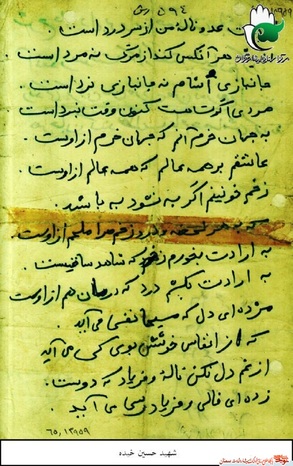 ۵۹۴
ن عده و ناله من از سر درد است.
هر آنکس کند از مرگ نه مرد است
جانبازی نه جانبازی نرد است.
مردی اگرت هست کنون وقت نبرد است
به جهان خرم از آنم که جهان خرم از اوست.
عاشقم بر همه عالم که همه عالم از اوست.
زخم خونینم اگر به نشود به باشد.
زخم مرا مرهم از اوست
به ارادت بخورم زهر که شاهد ساقیست.
به ارادت بکشم درد که درمان هم از اوست
مژده ای دل که مسیحا نفسی می‌آید
که از انفاس خوشش بوی کسی می‌آید
از غم دل مکن ناله و فریاد که دوست.
زده‌ای فالی و فریاد رسی می‌آید.
۶۵,۱۳۹۵۹
شهید حسین خبده